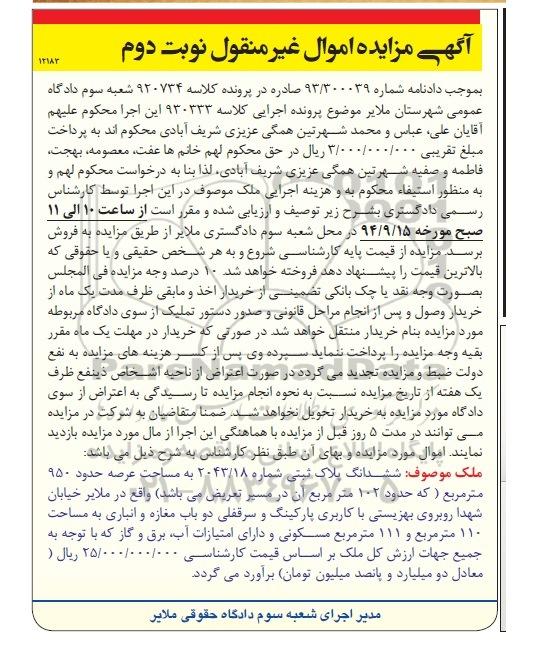 آگهی مزایده اموال غیر منقول نوبت دوم
۱۲۱۸۳
بموجب دادنامه شماره ۹۳/۳۰۰۰۳۹ صادره در پرونده کلاسه ۹۲۰۷۳۴ شعبه سوم دادگاه
عمومی شهرستان ملایر موضوع پرونده اجرایی کلاسه ۹۳۰۳۳۳ این اجرا محکوم علیهم
آقایان علی، عباس و محمد شهرتین همگی عزیزی شریف آبادی محکوم اند به پرداخت
مبلغ تقریبی ۳/۰۰۰/۰۰۰/۰۰۰ ریال در حق محکوم لهم خانم ها عفت، معصومه، بهجت،
فاطمه و صفیه شهرتین همگی عزیزی شریف آبادی، لذا بنا به درخواست محکوم لهم و
به منظور استیفاء محکوم به و هزینه اجرایی ملک موصوف در این اجرا توسط کارشناس
رسمی دادگستری بشرح زیر توصیف و ارزیابی شده و مقرر است از ساعت ۱۰ الی ۱۱
صبح مورخه ۹۴/۹/۱۵ در محل شعبه سوم دادگستری ملایر از طریق مزایده به فروش
برسد. مزایده از قیمت پایه کارشناسی شروع و به هر شخص حقیقی و یا حقوقی که
بالاترین قیمت را پیشنهاد دهد فروخته خواهد شد. ۱۰ درصد وجه مزایده فی المجلس
بصورت وجه نقد یا چک بانکی تضمینی از خریدار اخذ و مابقی ظرف مدت یک ماه از
خریدار وصول و پس از انجام مراحل قانونی و صدور دستور تملیک از سوی دادگاه مربوطه
مورد مزایده بنام خریدار منتقل خواهد شد. در صورتی که خریدار در مهلت یک ماه مقرر
بقیه وجه مزایده را پرداخت ننماید سپرده وی پس از کسر هزینه های مزایده به نفع
دولت ضبط و مزایده تجدید می گردد در صورت اعتراض از ناحیه اشخاص ذینفع ظرف
یک هفته از تاریخ مزایده نسبت به نحوه انجام مزایده تا رسیدگی به اعتراض از سوی
دادگاه مورد مزایده به خریدار تحویل نخواهد شد. ضمنا متقاضیان به شرکت در مزایده
می توانند در مدت ۵ روز قبل از مزایده با هماهنگی این اجرا از مال مورد مزایده بازدید
نمایند. اموال مورد مزایده و بهای آن طبق نظر کارشناس به شرح ذیل می باشد:
ملک موصوف: ششدانگ پلاک ثبتی شماره ۲۰۴۳/۱۸ به مساحت عرصه حدود ۹۵۰
مترمربع ( که حدود ۱۰۲ متر مربع آن در مسیر تعریض می باشد) واقع در ملایر خیابان
شهدا روبروی بهزیستی با کاربری پارکینگ و سرقفلی دو باب مغازه و انباری به مساحت
۱۱۰ مترمربع و ۱۱۱ مترمربع مسکونی و دارای امتیازات آب، برق و گاز که با توجه به
جمیع جهات ارزش کل ملک بر اساس قیمت کارشناسی ۲۵/۰۰۰/۰۰۰/۰۰۰ ریال (
معادل دو میلیارد و پانصد میلیون تومان) برآورد می گردد.
مدیر اجرای شعبه سوم دادگاه حقوقی ملایر